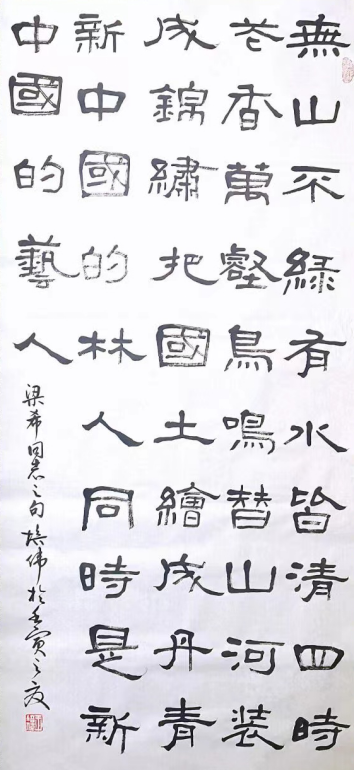 無山不綠有水皆清四時
花香萬壑鳥鳴替山河裝
成錦繡把國土繪成丹青
新中國的林人同時是新
中國的藝人
梁希同志之句培伟於壬寅之夏